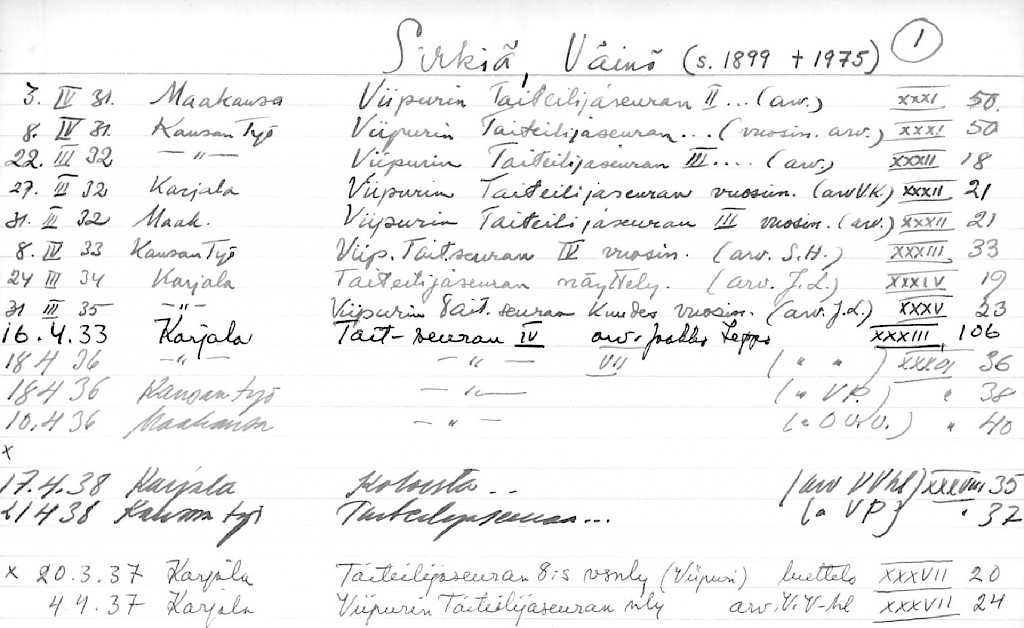 Sirkiä, Väinö (s. 1899 † 1975) 1
3. IV 31. Maakansa Viipurin Taiteilijaseuran II... (arv.) XXXI 50.
8. IV 31. Kansan Työ Viipurin Taiteilijaseuran... (vuosin. arv.) XXXI 50
22. III 32 —"— Viipurin Taiteilijaseuran III.... (arv.) XXXII 18
27. III 32 Karjala Viipurin Taiteilijaseuran vuosin. (arv V.K.) XXXII 21
31. III 32 Maak. Viipurin Taiteilijaseuran III vuosin. (arv.) XXXII 21
8. IV 33 Kansan Työ Viip. Tait.seuran IV vuosin. (arv. S.H.) XXXIII 33
24 III 34 Karjala Taiteilijaseuran näyttely. (arv. J.L.) XXXIV 19
31 III 35 —"— Viipurin Tait.seuran kuudes vuosin. (arv. J.L.) XXXV 23
16.4.33 Karjala Tait-seuran IV arv. Jaakko Leppo XXXIII, 106
18 4 36 —"— —"— VII (" ") XXXVI 36
18 4 36 Kansan työ —"— (" VP.) " 38
10.4 36 Maakansa —"— (" O.V.V.) " 40
x
17.4.38 Karjala ... (arv VVhl) XXXVIII 35
21 4 38 Kansan työ Taiteilijaseuran... (" VP) " 37
x 20.3.37 Karjala Taiteilijaseuran 8:s vsnly (Viipuri) luettelo XXXVII 20
4.4.37 Karjala Viipurin Taiteilijaseuran nly arv. V.V-hl XXXVII 24